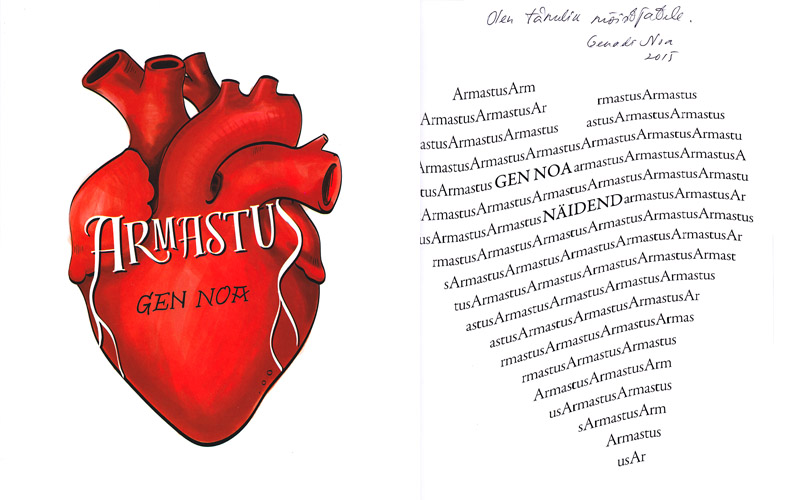 ARMASTUS
GEN NOA
Olen tänulik mõistjatele.
Genadi Noa
2015
ArmastusArm
rmastusArmastus
ArmastusArmastusAr
astusArmastusArmastus
astusArmastusArmastus
ArmastusArmastusArmastusArmastusArmastusArmastu
tusArmastus GEN NOA armastusArmastusArmastusA
ArmastusArmastusArmastusArmastusArmastusArmastu
usArmastusArmastus NÄIDEND armastusArmastusAr
rmastusArmastusArmastusArmastusArmastusArmastus
sArmastusArmastusArmastusArmastusArmastusAr
tusArmastusArmastusArmastusArmastusArmast
astusArmastusArmastusArmastusArmastus
astusArmastusArmastusArmastusAr
rmastusArmastusArmastusArmas
rmastusArmastusArmastus
ArmastusArmastusArm
usArmastusArmastus
sArmastusArm
Armastus
usAr